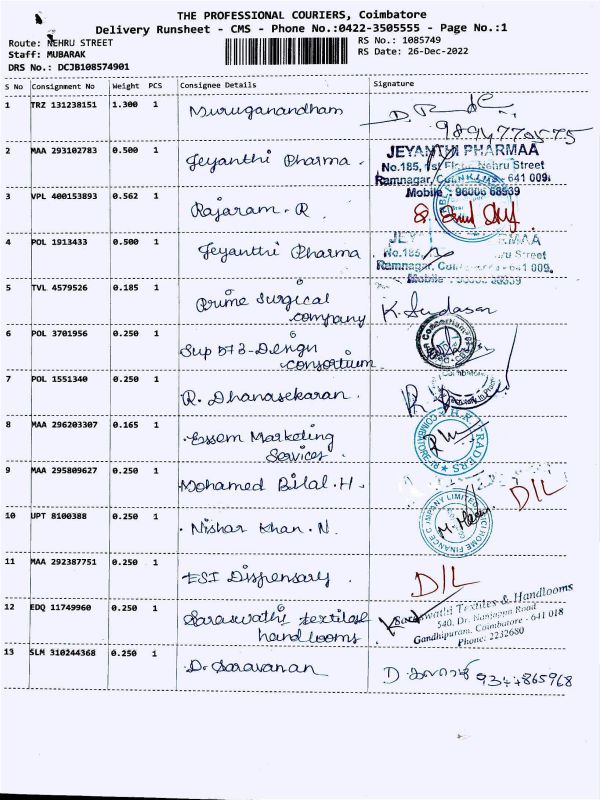 THE PROFESSIONAL COURIERS, Coimbatore
Delivery Runsheet - CMS - Phone No.:0422-3505555 - Page No.:1
Route: NEHRU STREET
Staff: MUBARAK
DRS No.: DCJB108574901
RS No.: 1085749
RS Date: 26-Dec-2022
S No Consignment No Weight PCS Consignee Details Signature
1 TRZ 131238151 1.300 1 Muruganandham
2 MAA 293102783 0.500 1 Jeyanthi Pharma.
JEYANTHI PHARMAA
No.185, 1st Floor, Nehru Street
Ramnagar, - 641 009.
Mobile : 96006 68539
3 VPL 400153893 0.562 1 Rajaram.R
4 POL 1913433 0.500 1 Jeyanthi Pharma
No.185, Street
Ramnagar, - 641 009.
Mobile
5 TVL 4579526 0.185 1 Prime Surgical
company K. Sudasan
6 POL 3701956 0.250 1 Sup 573-Dengn
consortium.
7 POL 1551340 0.250 1 R. Dhanasekaran.
8 MAA 296203307 0.165 1 Essem Marketing
Services.
9 MAA 295809627 0.250 1 Mohamed Bilal.H. D/L
10 UPT 8100388 0.250 1 Nishar Khan.N.
HOME FINANCE COMPANY LIMITED
11 MAA 292387751 0.250 1 ESI Dispensary. D/L
12 EDQ 11749960 0.250 1 Saraswathi textiles
handlooms
Saraswathi Textiles & Handlooms
540, Dr. Nanjappa Road
Gandhipuram, Coimbatore - 641 018
Phone: 2232680
13 SLM 310244368 0.250 1 D. Saravanan